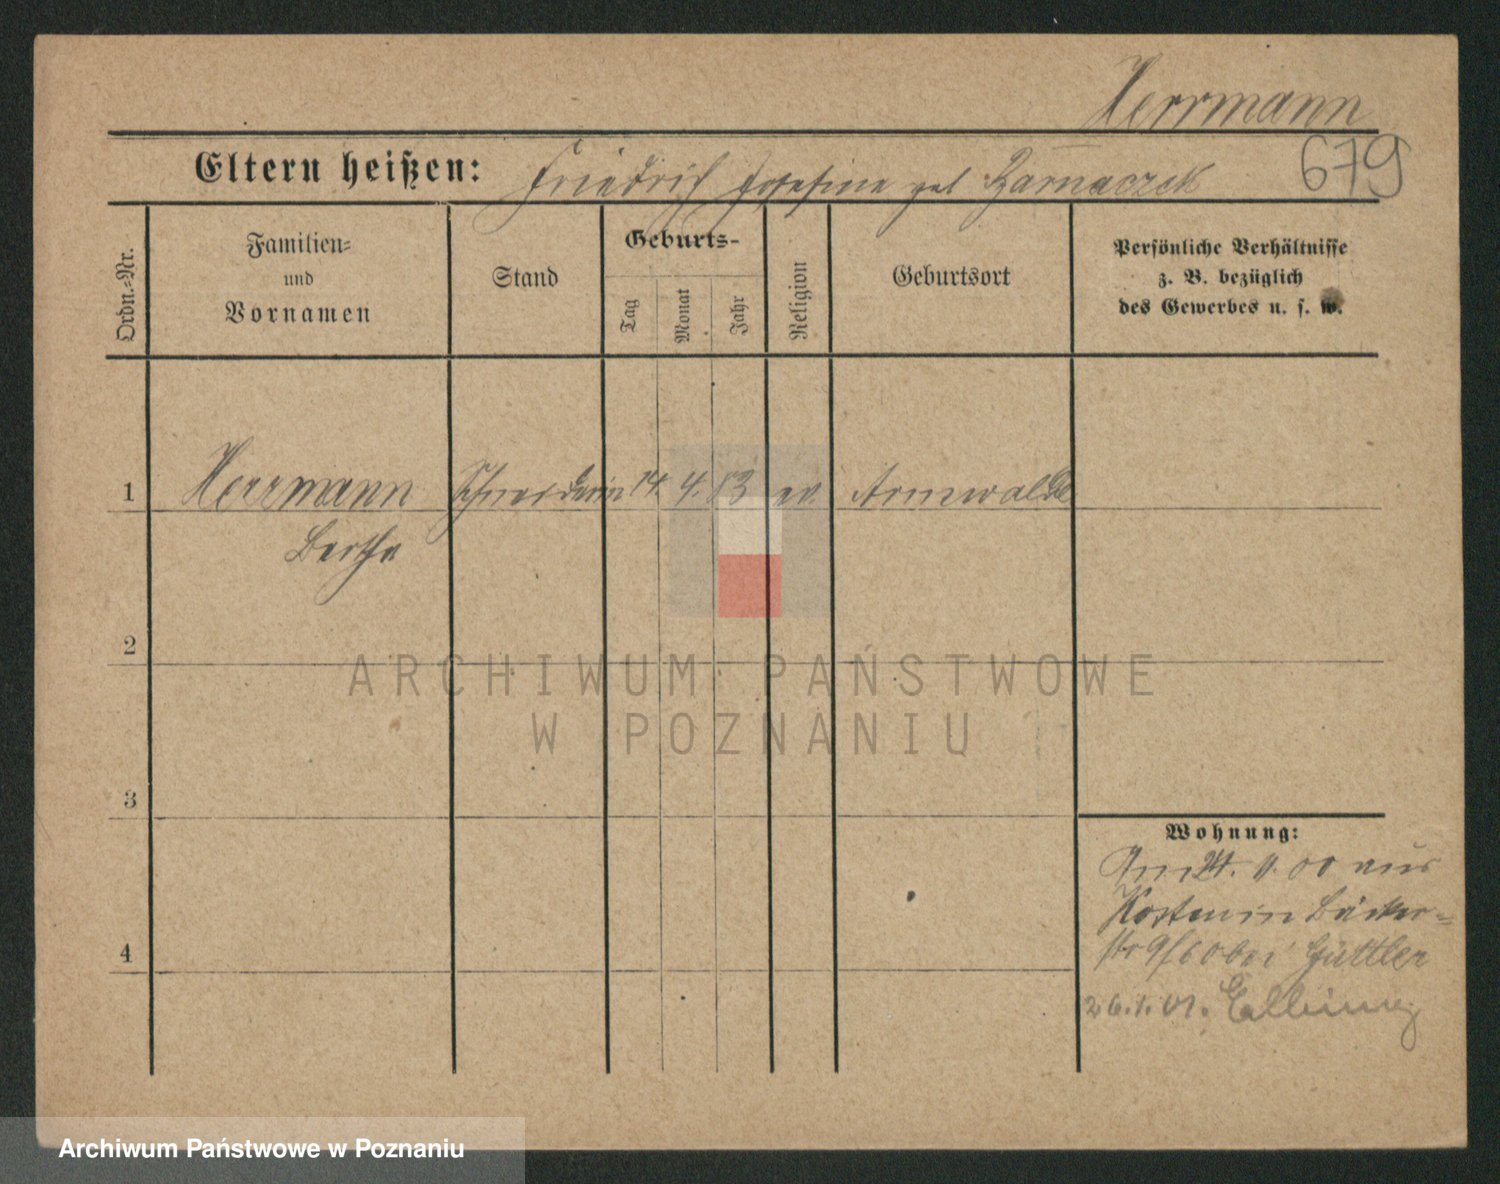 Herrmann
Eltern heißen: Friedrich Josefine geb
679
Ordn.-Nr.
Familien-
und
Vornamen
Stand
Geburts-
Tag
Monat
Jahr
Religion
Geburtsort
Persönliche Verhältnisse
z. B. bezüglich
des Gewerbes u. s. w.
1 Herrmann Schneiderin 14. 4. 83 ev. Arnswalde
Bertha
2
3
4
Wohnung:
Am 24. 9. 00 aus
Kosten in Bäcker-
str 9/6 bei Güttler
26.1.01. Elbing
ARCHIWUM PAŃSTWOWE
W POZNANIU
Archiwum Państwowe w Poznaniu